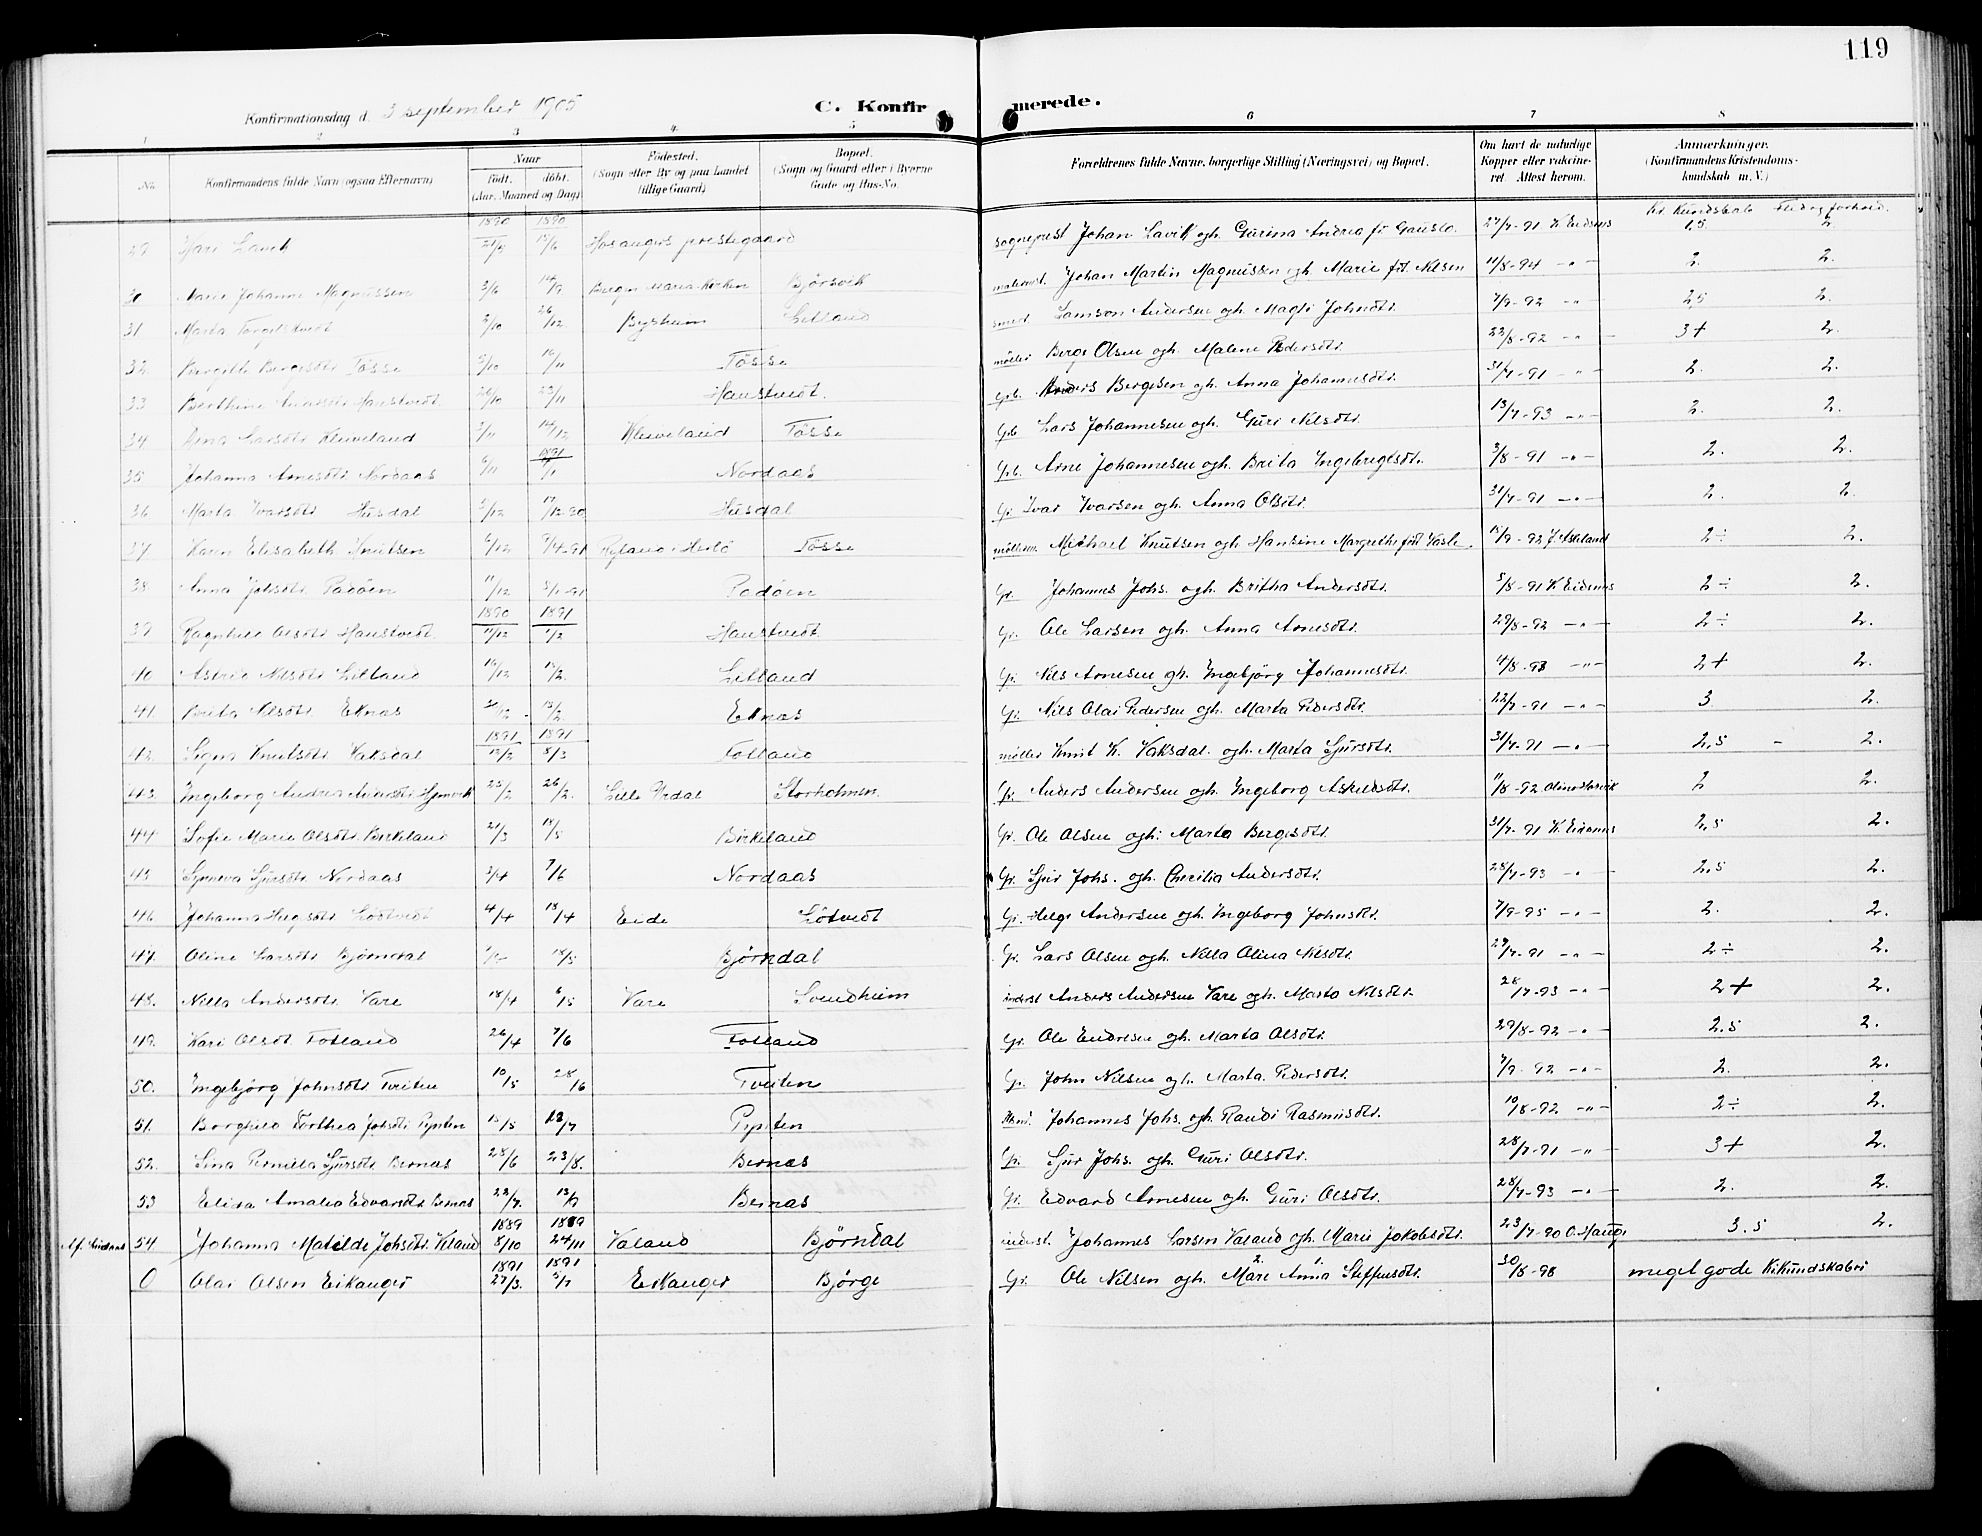 119
Konfirmationsdag d. 3 september 1905 C. Konfirmerede.
1 2 3 4 5 6 7 8
No. Konfirmandens fulde Navn (ogsaa Efternavn) Naar Födt. döbt. (Aar, Maaned og Dag) Födested. (Sogn eller By og paa Landet tillige Gaard) Bopæl. (Sogn og Gaard eller i Byerne Gade og Hus-No. Forældrenes fulde Navne, borgerlige Stilling (Næringsvei) og Bopæl. Om havt de naturlige Kopper eller vaksineret. Attest herom. Anmerkninger. (Konfirmandens Kristendomskundskab m. V.)
1890 1890 Kr. Kundskab Flid og forhold.
29 Kari Lavik 21/5 15/6 Hosangers prestegaard sogneprest Johan Lavik ogh. Gurina Andrea f. 27/7-91 K Eidsnes 1,5 2
30 Marie Johanne Magnussen 3/6 14/9 Bergen Maria-Kirken Bjørsvik Johan Martin Magnussen ogh Marie fdt. Nilsen 11/8-94 -"- 2. 2.
31. Marta 2/10 26/12 Bysheim Litland smed Samson Andersen ogh. Magli Johnsdtr. 7/9-92 -"- 2,5 2.
32 Bergitte Bergesdtr Tøsse 5/10 16/11 Tøsse møller Berge Olsen ogh. Malene Pedersdtr. 22/8-92 -"- 3+ 2.
33 Berthine Andersdtr Hanstvedt 26/10 23/11 Hanstvedt. Grb. Anders Bergesen ogh. Anna Johannesdtr. 31/7-91 -"- 2. 2.
34 Anna Larsdtr Kleiveland 3/11 14/12 Kleiveland Tøsse Grb Lars Johannesen ogh. Guri Nilsdtr. 13/7-93 -"- 2. 2.
35 Johanna Arnesdtr Nordaas 6/11 1891 1/1 Nordaas Grb. Arne Johannesen ogh. Brita Ingebrigtsdtr. 3/8-91 -"- 2. 2.
36 Marta Ivarsdtr Husdal 5/12 17/12-90 Husdal Gr. Ivar Ivarsen ogh. Anna Olsdtr. 31/7-91 -"- 2. 2.
37 Karen Elisabeth Knutsen 6/12 9/4-91 Ryland i Herlø Tøsse møllesv. Michael Knutsen ogh Hansine Margrethe fdt Vasle. 15/9-92 J. Askeland 2÷ 2.
38 Anna Johsdtr. Padøen 11/12 3/1-91 Padøen Gr. Johannes Johs. ogh. Britha Andersdtr. 5/8-91 K Eidsnes 2÷ 2.
39 Ragnhild Olsdtr Hanstvedt. 1890 11/12 1891 1/2 Hanstvedt Gr. Ole Larsen ogh. Anna Arnesdtr. 29/8-92 -"- 2÷ 2.
40 Astrid Nilsdtr Litland 19/12 15/2. Litland Gr. Nils Arnesen ogh. Ingebjørg Johannesdtr. 4/8-93 -"- 2+ 2.
41. Brita Nilsdtr. Eknas 15/2. Eknas Gr. Nils Olai Pedersen ogh. Marta Pedersdtr. 22/7-91 -"- 3 2.
42. Signa Knutsdtr Vaksdal 1891 12/2 1891 8/3 Fotland møller Knut K. Vaksdal. ogh. Marta Sjursdtr. 31/7-91 -"- 2,5 - 2.
43. Ingeborg Andrea Andersdtr 25/2 26/2. Lille Urdal Storholmen. Gr. Anders Andersen ogh. Ingeborg Askildsdtr. 11/8-92 2 2.
44 Sofie Marie Olsdtr. Birkeland 21/3 18/5 Birkeland Gr. Ole Olsen ogh. Marta Bergesdtr. 31/7-91 K. Eidsnes 2,5 2.
45 Synneva Sjursdtr Nordaas 3/4 7/6 Nordaas Gr. Sjur Johs. ogh. Cecilia Andersdtr. 28/7-93 -"- 2,5 2.
46 Johanna Helgesdtr Løtvedt 4/4 13/4 Eide Løtvedt Gr. Helge Andersen ogh. Ingeborg Johnsdtr. 7/9-95 -"- 2. 2.
47. Oline Larsdtr Bjørndal 18/5 Bjørndal Gr. Lars Olsen ogh. Nilla Olina Nilsdtr. 29/7-91 -"- 2÷ 2.
48. Nilla Andersdtr Vare 18/4 6/15 Vare Svendheim inderst Anders Andersen Vare ogh. Marta Nilsdtr. 28/7-93 -"- 2+ 2.
49. Kari Olsdt Fotland 26/4 7/6 Fotland Gr. Ole Endresen ogh. Marta Olsdtr. 29/8-92 -"- 2.5 2.
50. Ingebjørg Johnsdtr. Tveiten 10/5 28/16 Tveiten Gr. John Nilsen ogh. Marta Pedersdtr. 7/9-92 -"- 2. 2.
51. Borghild Dorthea Johsdtr Pytten 15/5 12/7 Pytten Johannes Johs. ogh Randi Rasmusdtr. 10/8-92 -"- 2÷ 2.
52. Lina Pernilla Sjursdtr Bernes 28/6 23/8. Bernes Gr. Sjur Johs. ogh. Guri Olsdtr. 28/7-91 -"- 3+ 2.
53 Elida Amalia Edvardsdtr Bernes 22/7. 13/9 Bernes Gr. Edvard Arnesen ogh. Guri Olsdtr. 28/7-93 -"- 2. 2.
54. Johanna Matilde Johsdtr. Valand 1889 8/10 1889 24/11 Valand Bjørndal inderst. Johannes Larsen Valand ogh. Marie Jakobsdtr. 23/7-90 O. Hauge 3.5 2.
0 Olai Olsen Eikanger 1891 27/3. 1891 5/7 Eikanger Bjørge Gr. Ole Nilsen ogh. Mari Anna Steffensdtr. 30/8-98 meget gode Kr.kundskaber